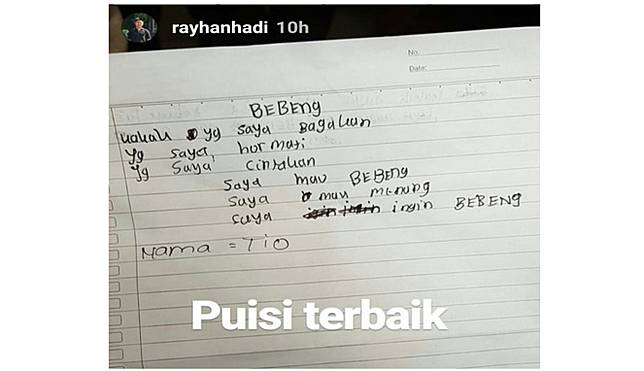 rayhanhadi 10h
No.
Date:
BEBENg
kakak yg saya Bagakan
Yg saya, hormati
Yg saya cintakan
Saya mau BEBENg
Saya mau menung
saya ingin BEBENg
Nama = Tio
Puisi terbaik